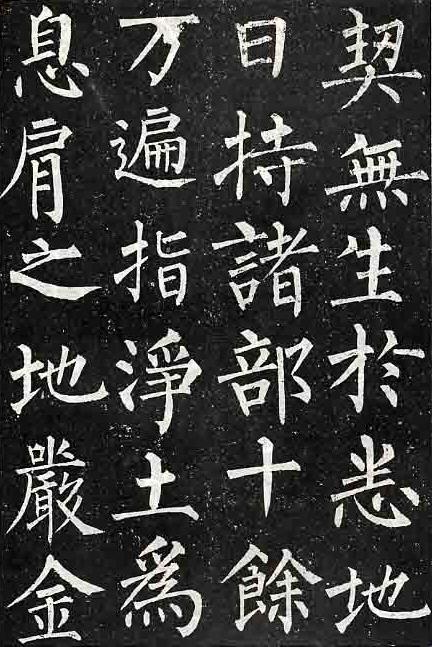 契無生於悉地
日持諸部十餘
万遍指淨土爲
息肩之地嚴金